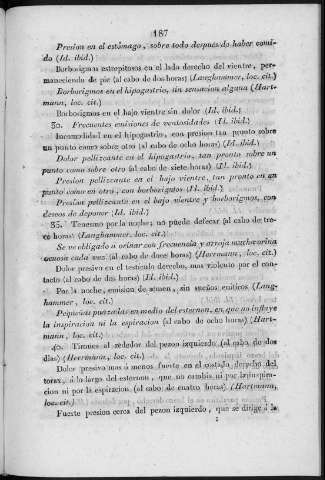 187
Presion en el estómago, sobre todo despues de haber comi-
do (Id. ibid.)
Borborigmos estrepitosos en el lado derecho del vientre, per-
maneciendo de pie (al cabo de dos horas) (Langhammer, loc. cit.)
Borborigmos en el hipogastrio, sin sensacion alguna (Hart-
mann, loc. cit.)
Borborigmos en el bajo vientre sin dolor (Id. ibid.)
30. Frecuentes emisiones de ventosidades (Id. ibid.)
Incomodidad en el hipogastrio, con presion tan pronto sobre
un punto como sobre otro (al cabo de ocho horas) (Id. ibid.)
Dolor pellizcante en el hipogastrio, tan pronto sobre un
punto como sobre otro (al cabo de siete horas) (Id. ibid.)
Presion pellizcante en el bajo vientre, tan pronto en un
punto como en otro, con borborigmos (Id. ibid.)
Presion pellizcante en el bajo vientre y borborigmos, con
deseos de deponer (Id. ibid.)
35. Tenesmo por la noche; no puede defecar (al cabo de tre-
ce horas) (Langhammer, loc. cit.)
Se ve obligado a orinar con frecuencia y arroja mucha orina
acuosa cada vez (al cabo de doce horas) (Hartmann, loc. cit.)
Dolor presivo en el testiculo derecho, mas violento por el con-
tacto (al cabo de dos horas) (Id. ibid.)
Por la noche, emision de semen, sin sueños eróticos (Lang-
hammer, loc. cit.)
Pequeñas punzadas en medio del esternon, en que no influye
la inspiracion ni la espiracion (al cabo de ocho horas) (Hart-
mann, loc. cit.)
40. Tirones al rededor del pezon izquierdo (al cabo de dos
dias) (Heermann, loc. cit.)
Dolor presivo mas o menos fuerte en el costado derecho del
torax, á lo largo del esternon, que no cambia ni por la inspira-
cion ni por la espiracion (al cabo de cuatro horas) (Hartmann,
loc. cit.)
Fuerte presion cerca del pezon izquierdo, que se dirige á la